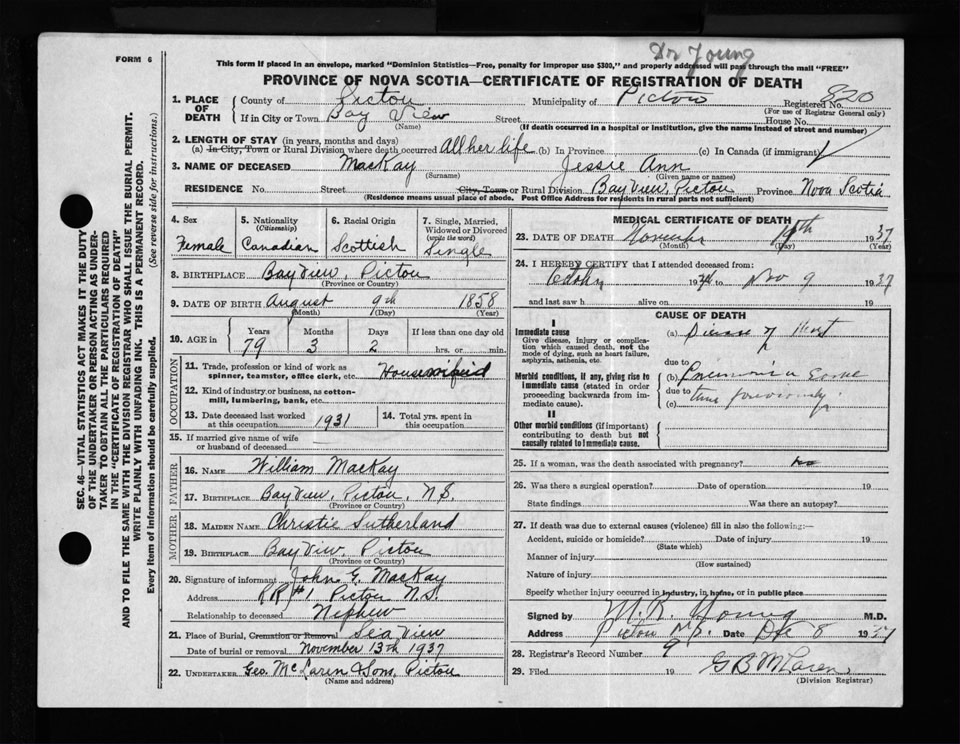 Dr Young
FORM 6
This form if placed in an envelope, marked "Dominion Statistics—Free, penalty for improper use $300," and properly addressed will pass through the mail "FREE"
PROVINCE OF NOVA SCOTIA—CERTIFICATE OF REGISTRATION OF DEATH
SEC. 46—VITAL STATISTICS ACT MAKES IT THE DUTY
OF THE UNDERTAKER OR PERSON ACTING AS UNDER-
TAKER TO OBTAIN ALL THE PARTICULARS REQUIRED
IN THE "CERTIFICATE OF REGISTRATION OF DEATH"
AND TO FILE THE SAME WITH THE DIVISION REGISTRAR WHO SHALL ISSUE THE BURIAL PERMIT.
WRITE PLAINLY WITH UNFADING INK. THIS IS A PERMANENT RECORD.
Every item of information should be carefully supplied. (See reverse side for instructions.)
1. PLACE OF DEATH County of Pictou Municipality of Pictou Registered No. 820
(For use of Registrar General only)
If in City or Town Bay View Street House No.
(Name) (If death occurred in a hospital or institution, give the name instead of street and number)
2. LENGTH OF STAY (in years, months and days)
(a) In City, Town or Rural Division where death occurred All her life (b) In Province (c) In Canada (if immigrant)
3. NAME OF DECEASED MacKay Jessie Ann
(Surname) (Given name or names)
RESIDENCE No. Street City, Town or Rural Division Bay View, Pictou Province Nova Scotia
(Residence means usual place of abode. Post Office Address for residents in rural parts not sufficient)
4. Sex Female
5. Nationality (Citizenship) Canadian
6. Racial Origin Scottish
7. Single, Married, Widowed or Divorced (write the word) Single
8. BIRTHPLACE Bay View, Pictou
(Province or County)
9. DATE OF BIRTH August 9th 1858
(Month) (Day) (Year)
10. AGE in Years 79 Months 3 Days 2 If less than one day old
hrs. or min.
OCCUPATION
11. Trade, profession or kind of work as
spinner, teamster, office clerk, etc.
12. Kind of industry or business, as cotton-
mill, lumbering, bank, etc.
13. Date deceased last worked
at this occupation 1931
14. Total yrs. spent in
this occupation
15. If married give name of wife
or husband of deceased
FATHER
16. NAME William MacKay
17. BIRTHPLACE Bay View, Pictou, N.S.
(Province or County)
MOTHER
18. MAIDEN NAME Christie Sutherland
19. BIRTHPLACE Bay View, Pictou
(Province or County)
20. Signature of informant John G. MacKay
Address RR #1 Pictou N.S.
Relationship to deceased Nephew
21. Place of Burial, Cremation or Removal Sea View
Date of burial or removal November 13th 1937
22. UNDERTAKER Geo. McLaren & Sons, Pictou
(Name and address)
MEDICAL CERTIFICATE OF DEATH
23. DATE OF DEATH November 1937
(Month) (Day) (Year)
24. I HEREBY CERTIFY that I attended deceased from:
193 to Nov 9 1937
and last saw h alive on 19
CAUSE OF DEATH
I
Immediate cause
Give disease, injury or complica-
tion, which caused death, not the
mode of dying, such as heart failure,
asphyxia, asthenia, etc.
(a) Disease of Heart
due to
Morbid conditions, if any, giving rise to
immediate cause (stated in order
proceeding backwards from im-
mediate cause).
(b) Pneumonia some
due to time previously
(c)
II
Other morbid conditions (if important)
contributing to death but not
causally related to immediate cause.
25. If a woman, was the death associated with pregnancy? no
26. Was there a surgical operation? Date of operation 19
State findings Was there an autopsy?
27. If death was due to external causes (violence) fill in also the following:—
Accident, suicide or homicide? Date of injury 19
(State which)
Manner of injury
(How sustained)
Nature of injury
Specify whether injury occurred in industry, in home, or in public place
Signed by M. R. Young M.D.
Address Pictou N.S. Date Dec 8 1937
28. Registrar's Record Number 9
29. Filed 19 G B McLaren
(Division Registrar)